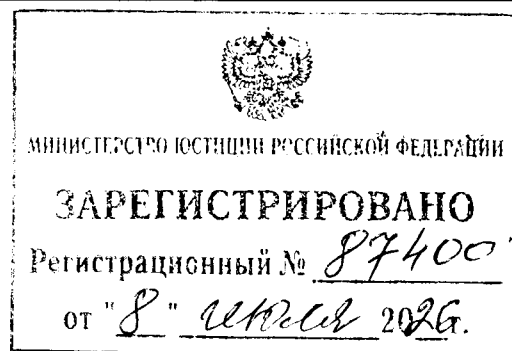 МИНИСТЕРСТВО ЮСТИЦИИ РОССИЙСКОЙ ФЕДЕРАЦИИ
ЗАРЕГИСТРИРОВАНО
Регистрационный № 87400
от "8" июля 2026.